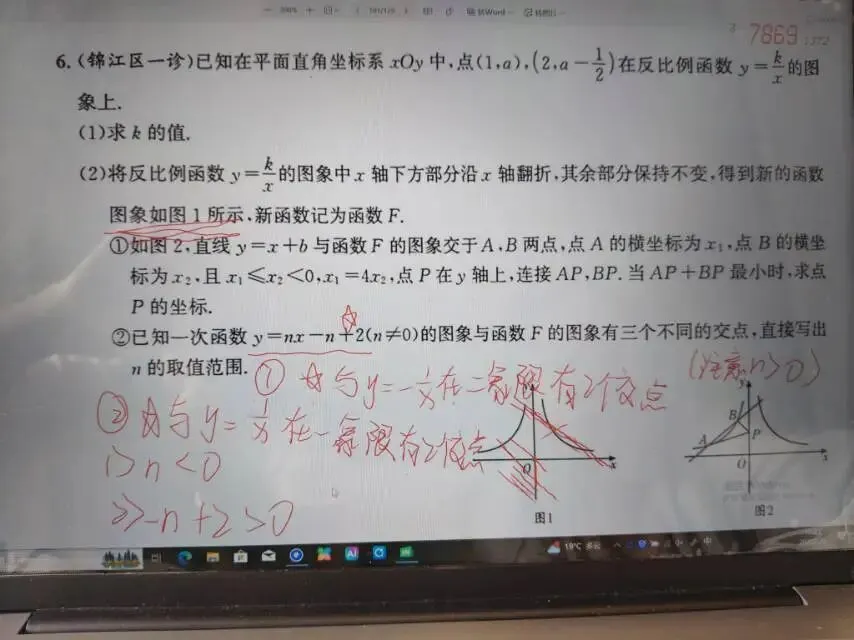 7869
6.(锦江区一诊)已知在平面直角坐标系 xOy 中,点(1,a),(2,a-1/2)在反比例函数 y=k/x 的图
象上.
(1)求 k 的值.
(2)将反比例函数 y=k/x 的图象中 x 轴下方部分沿 x 轴翻折,其余部分保持不变,得到新的函数
图象如图 1 所示,新函数记为函数 F.
①如图 2,直线 y=x+b 与函数 F 的图象交于 A,B 两点,点 A 的横坐标为 x₁,点 B 的横坐
标为 x₂,且 x₁≤x₂<0,x₁=4x₂,点 P 在 y 轴上,连接 AP,BP.当 AP+BP 最小时,求点
P 的坐标.
②已知一次函数 y=nx-n+2(n≠0)的图象与函数 F 的图象有三个不同的交点,直接写出
n 的取值范围.
① ☆与 y=-1/x 在二象限有2个交点
(注意 n>0)
② ☆与 y=1/x 在一象限有2个交点
1> n<0
2> -n+2>0
O
x
图1
y
B
A
P
O
x
图2
19°C 多云